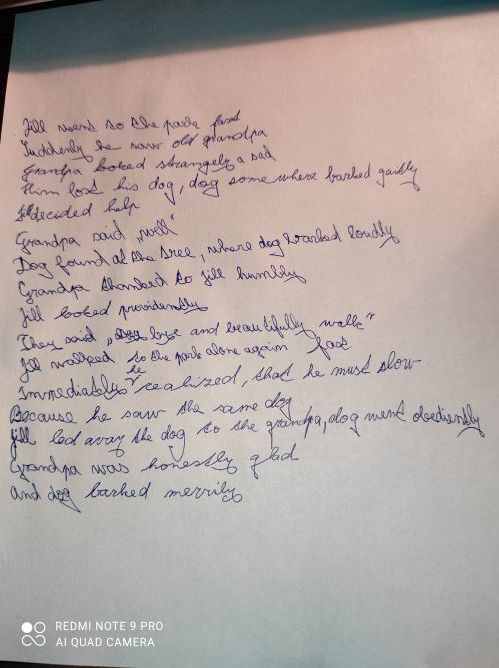 Jill went to the park fast
Suddenly he saw old grandpa
Grandpa looked strangely a sad
Him lost his dog, dog some where barked gaily
Jill decided help
Grandpa said „well“
Dog found at the tree, where dog barked loudly
Grandpa thanked to Jill humbly
Jill looked providently
They said „ bye and beautifully walk“
Jill walked to the park alone again fast
Immediately he realized, that he must slow
Because he saw the same dog
Jill led away the dog to the grandpa, dog went obediently
Grandpa was honestly glad
and dog barked merrily
REDMI NOTE 9 PRO
AI QUAD CAMERA